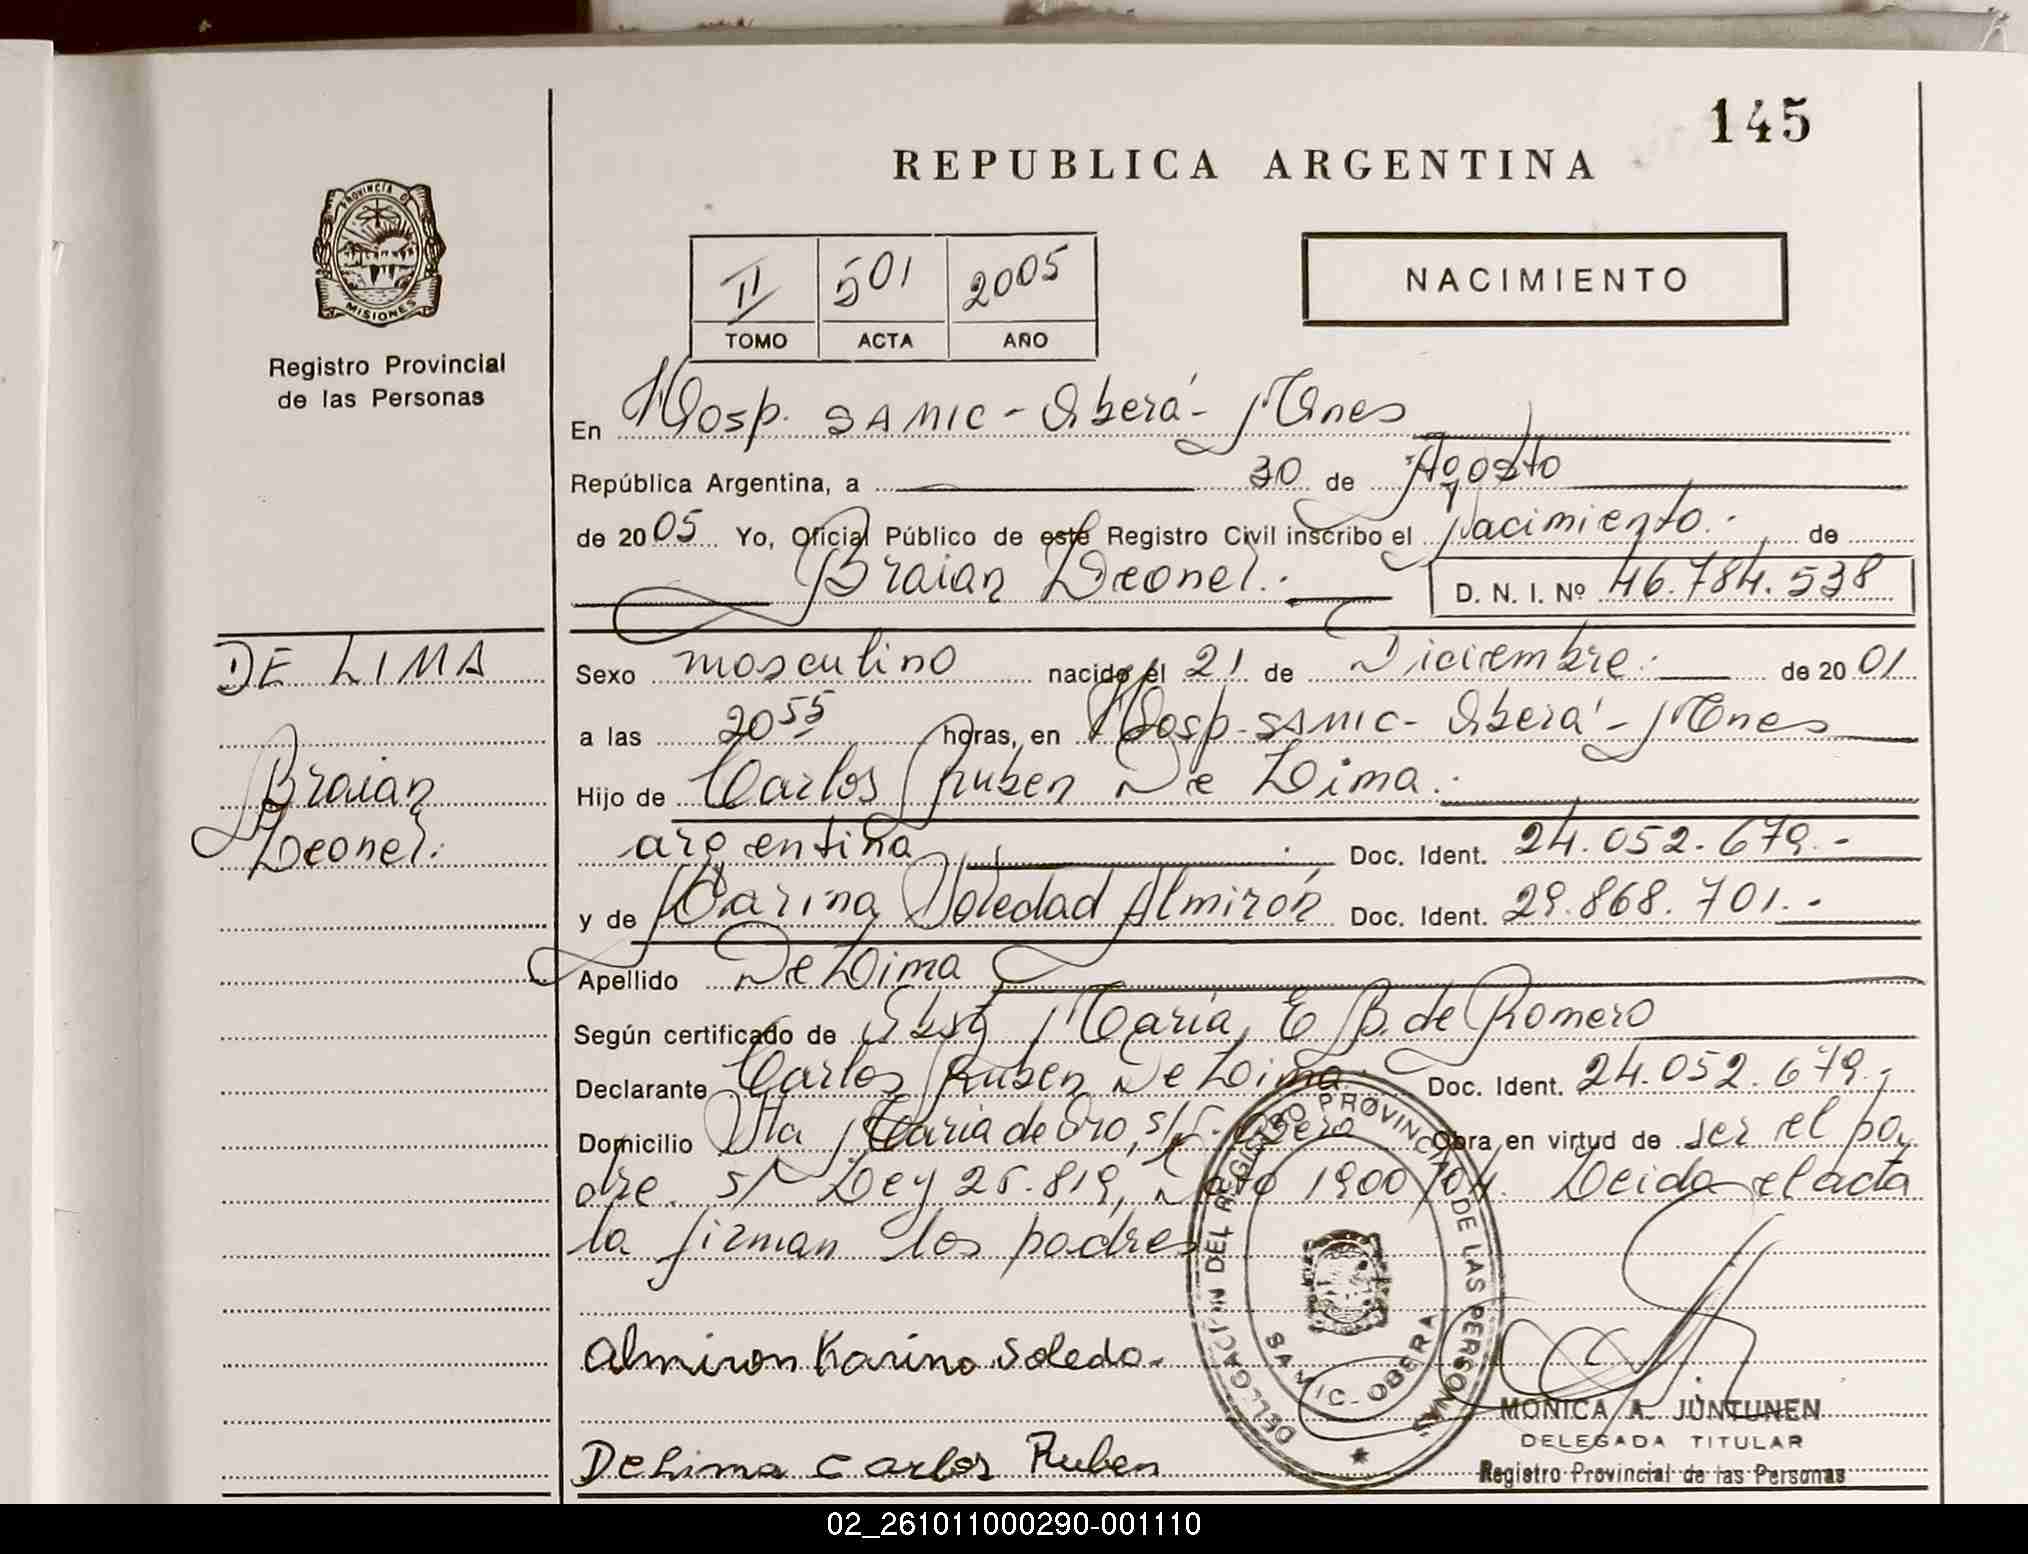 145
REPUBLICA ARGENTINA
PROVINCIA D
MISIONES
Registro Provincial
de las Personas
II 501 2005
TOMO ACTA AÑO
NACIMIENTO
En Hosp. SAMIC - Oberá - Mnes
República Argentina, a 30 de Agosto
de 2005 Yo, Oficial Público de este Registro Civil inscribo el nacimiento. de
Braian Leonel. D. N. I. Nº 46.784.538
DE LIMA
Braian
Leonel.
Sexo masculino nacido el 21 de Diciembre. de 2001
a las 20 55 horas, en Hosp. SAMIC - Oberá - Mnes
Hijo de Carlos Ruben De Lima.
argentina Doc. Ident. 24.052.679.-
y de Karina Soledad Almirón Doc. Ident. 29.868.701.-
Apellido De Lima
Según certificado de Obst María E B. de Romero
Declarante Carlos Ruben De Lima. Doc. Ident. 24.052.679.-
Domicilio Vta María de Oro, s/n - Oberá Obra en virtud de ser el pa
dre. s/ Ley 25.819, Dcto 1900/04. Leida el acta
la firman los padres
Almiron Karina Soleda.
DeLima Carlos Ruben
DELEGACION DEL REGISTRO PROVINCIAL DE LAS PERSONAS
SAMIC - OBERA
MONICA A. JUNTUNEN
DELEGADA TITULAR
Registro Provincial de las Personas
02_261011000290-001110